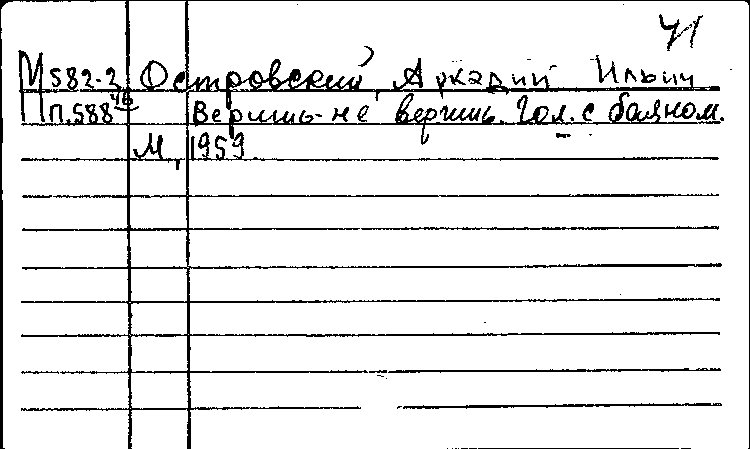 41
М582-2 Островский, Аркадий Ильич
П.588 Веришь-не веришь. Гол. с баяном.
М, 1959.